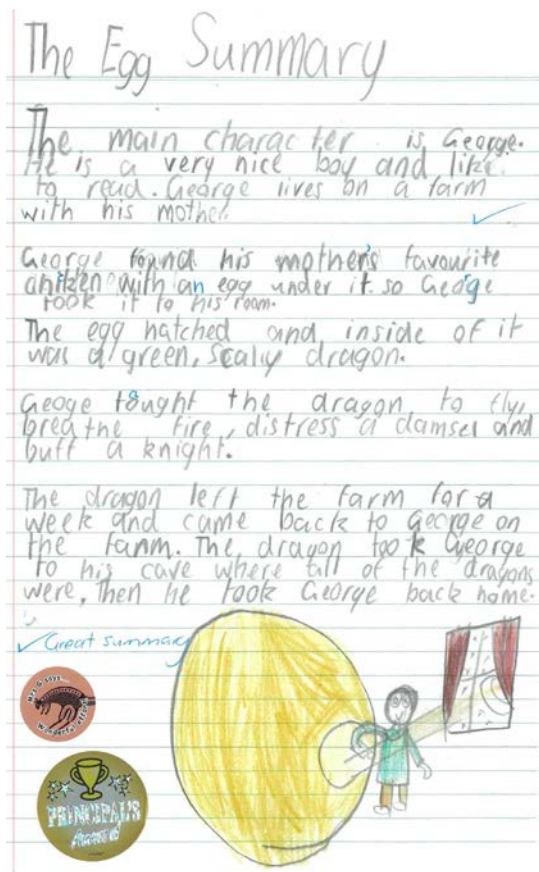 The Egg Summary
The main character is George.
He is a very nice boy and like
to read. George lives on a farm
with his mother.
George found his mother's favourite
chitzen with an egg under it. so George
took it to his room.
The egg hatched and inside of it
was a green, scaly dragon.
Geoge tought the dragon to fly,
breathe fire, distress a damsel and
buff a knight.
The dragon left the farm for a
week and came back to George on
the farm. The dragon took George
to his cave where all of the dragons
were, Then he took George back home.
Great summary
Mrs G says...
Wonderful effort
PRINCIPAL'S
Award